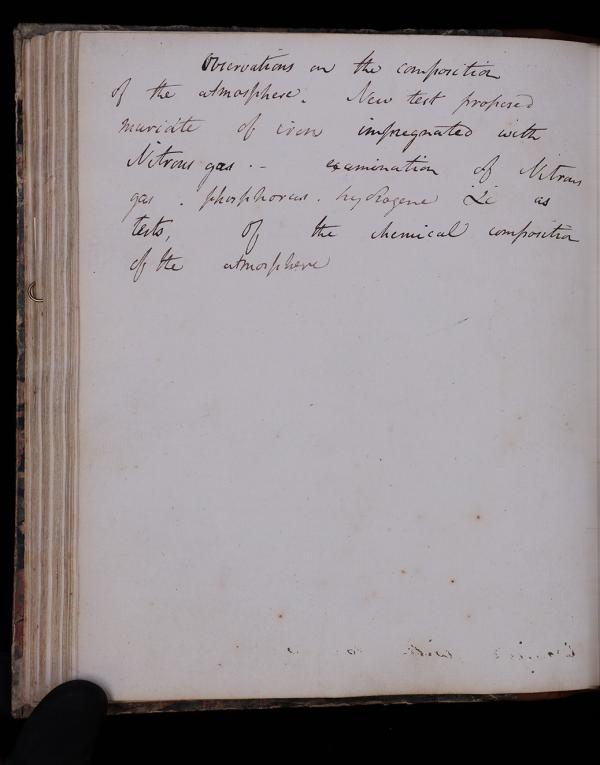 Observations on the composition
of the atmosphere. New test proposed
muriate of iron impregnated with
Nitrous gas. - examination of Nitrous
gas. phosphorus. hydrogene &c as
tests, of the chemical composition
of the atmosphere